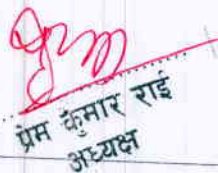 प्रेम कुमार राई
अध्यक्ष